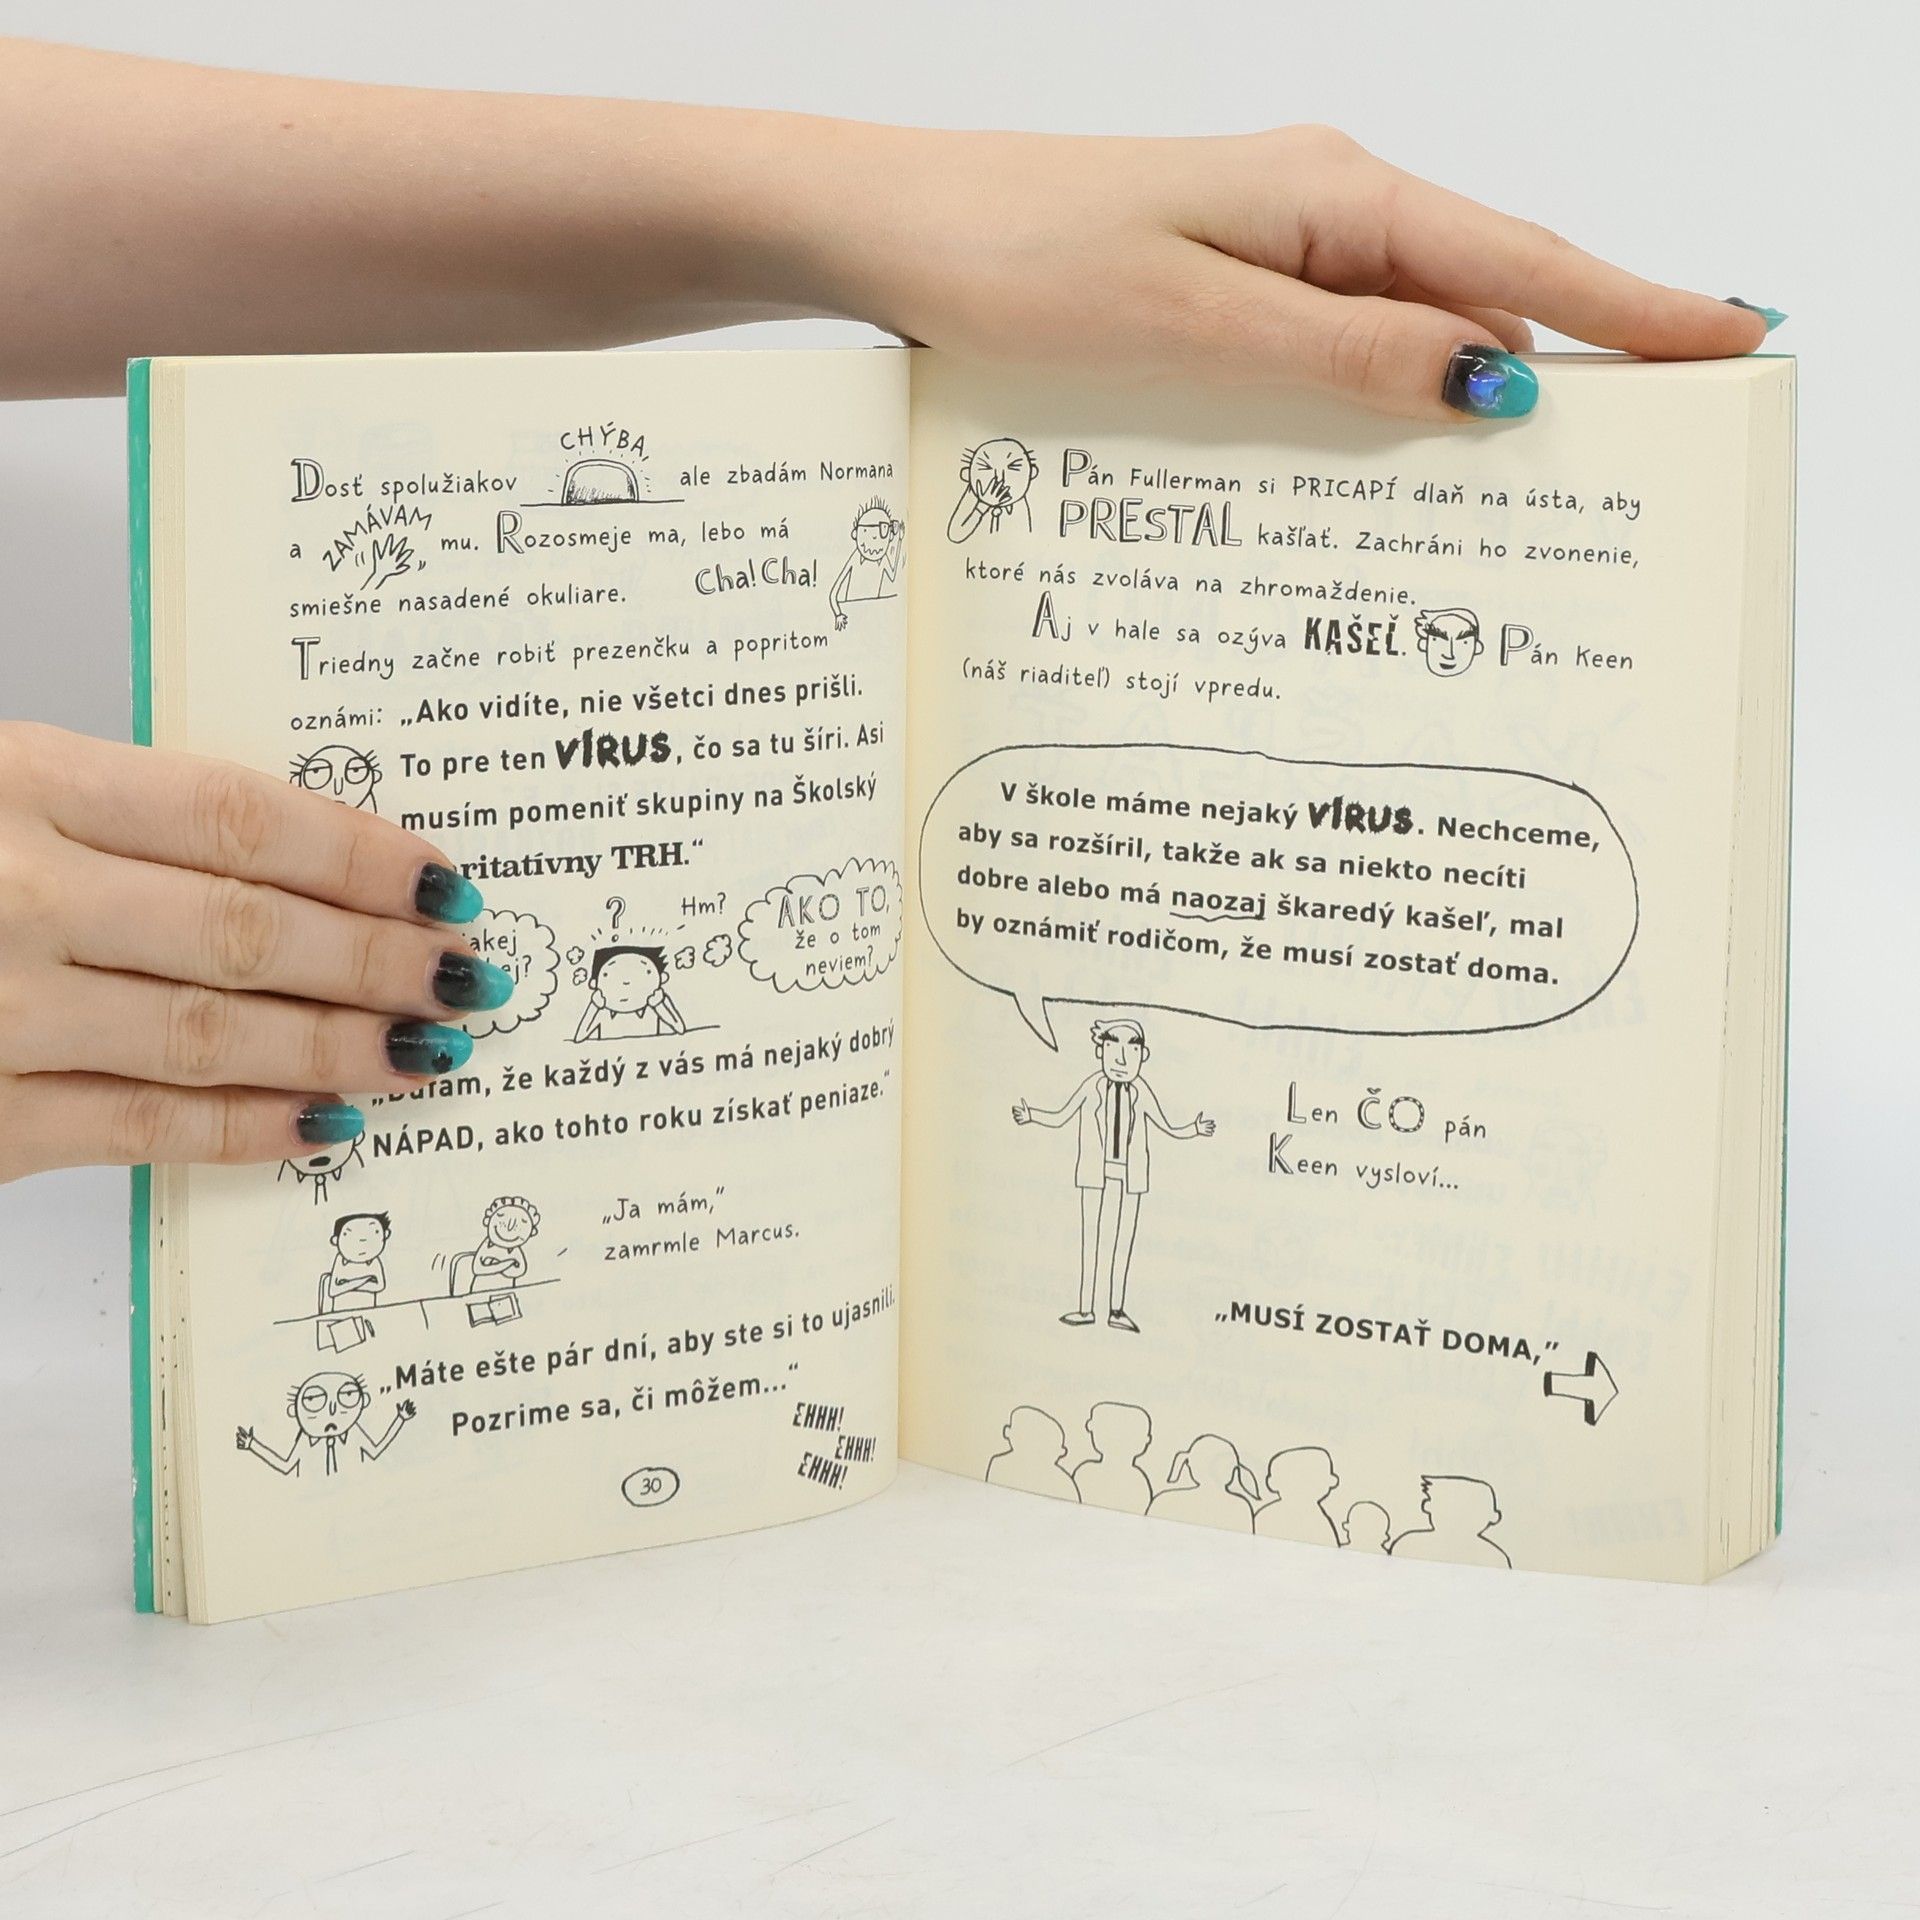 Dosť spolužiakov CHÝBA, ale zbadám Normana
a ZAMÁVAM mu. Rozosmeje ma, lebo má
smiešne nasadené okuliare. Cha! Cha!
Triedny začne robiť prezenčku a popritom
oznámi: „Ako vidíte, nie všetci dnes prišli.
To pre ten VÍRUS, čo sa tu šíri. Asi
musím pomeniť skupiny na Školský
TRH.“
?
Hm?
AKO TO,
že o tom
neviem?
že každý z vás má nejaký dobrý
NÁPAD, ako tohto roku získať peniaze.“
„Ja mám,“
zamrmle Marcus.
„Máte ešte pár dní, aby ste si to ujasnili.
Pozrime sa, či môžem...“
EHHH!
EHHH!
EHHH!
30
Pán Fullerman si PRICAPÍ dlaň na ústa, aby
PRESTAL kašľať. Zachráni ho zvonenie,
ktoré nás zvoláva na zhromaždenie.
Aj v hale sa ozýva KAŠEĽ. Pán Keen
(náš riaditeľ) stojí vpredu.
V škole máme nejaký VÍRUS. Nechceme,
aby sa rozšíril, takže ak sa niekto necíti
dobre alebo má naozaj škaredý kašeľ, mal
by oznámiť rodičom, že musí zostať doma.
Len ČO pán
Keen vysloví...
„MUSÍ ZOSTAŤ DOMA,“